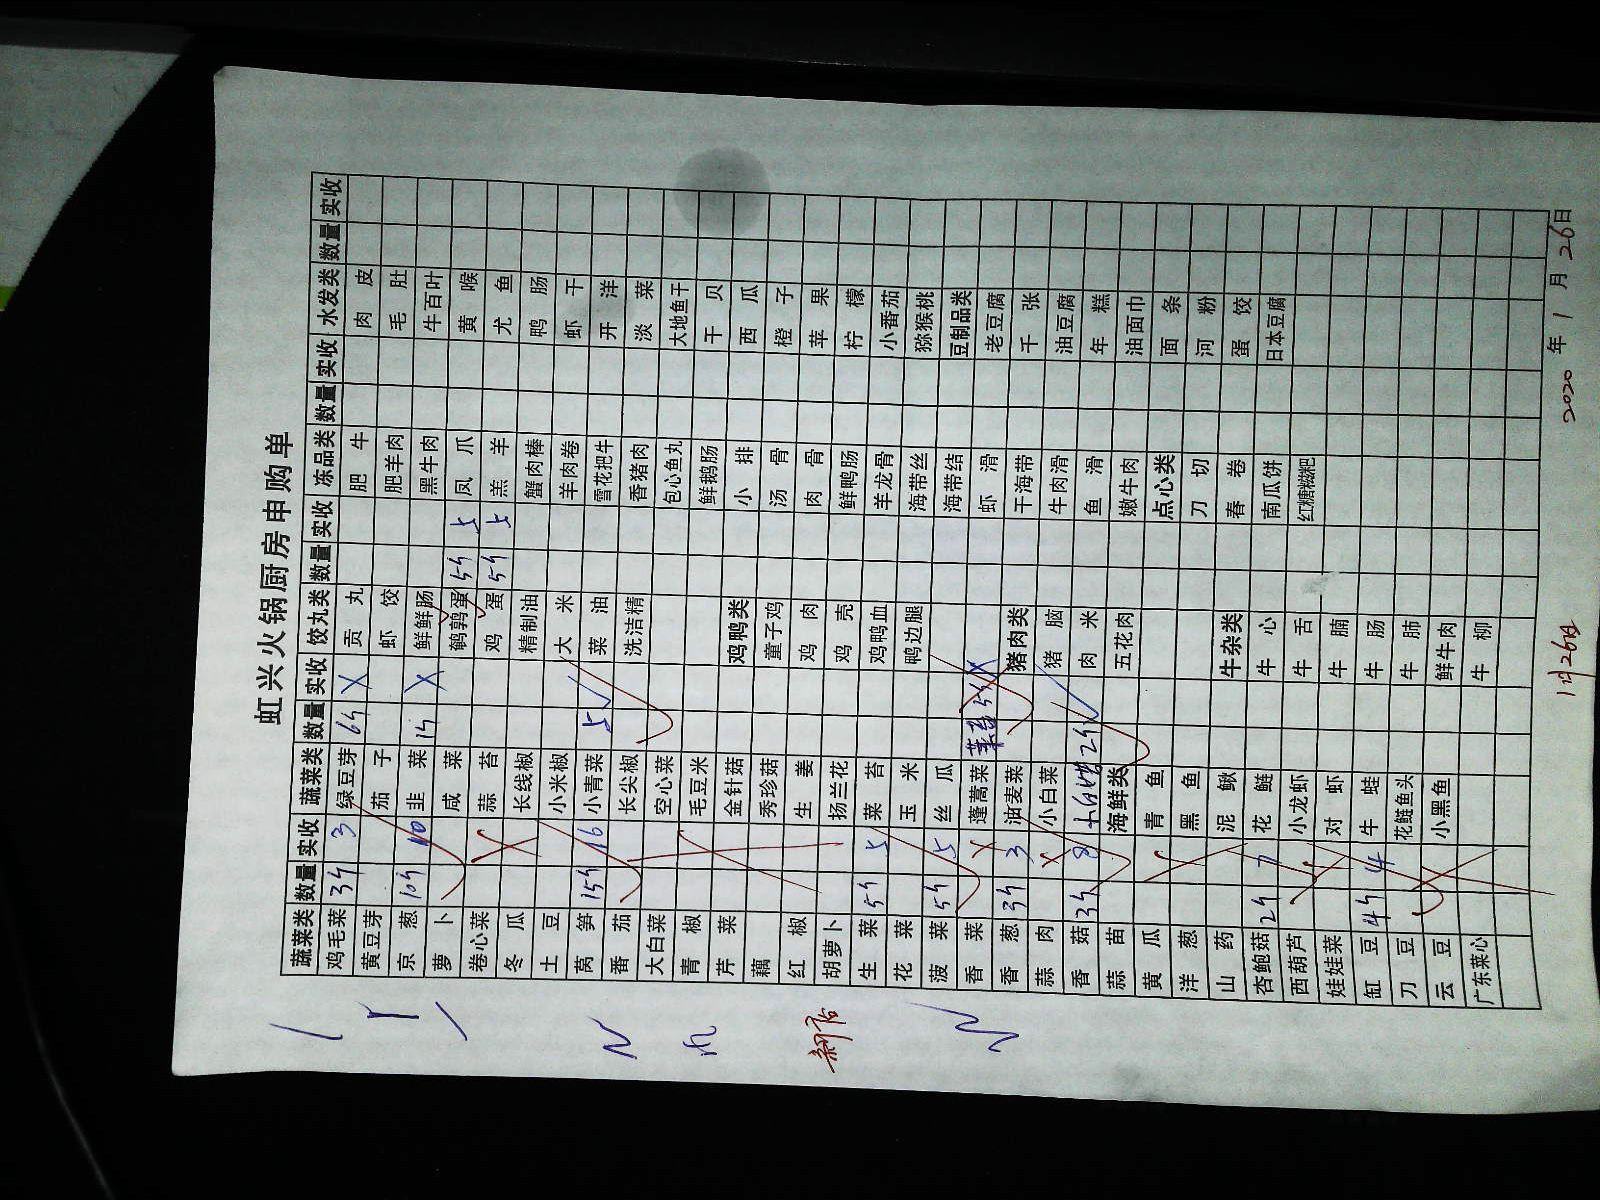 虹兴火锅厨房申购单
蔬菜类 数量 实收 蔬菜类 数量 实收 饺丸类 数量 实收 冻品类 数量 实收 水发类 数量 实收
鸡毛菜 3斤 3 绿豆芽 6斤 X 贡丸 肥牛 肉皮
黄豆芽 茄子 虾饺 肥羊肉 毛肚
京葱 10斤 10 韭菜 1斤 X 鲜鲜肠 黑牛肉 牛百叶
萝卜 咸菜 鹌鹑蛋 5斤 5 凤爪 黄喉
卷心菜 蒜苔 鸡蛋 5斤 5 羔羊 尤鱼
冬瓜 长线椒 精制油 蟹肉棒 鸭肠
土豆 小米椒 大米 羊肉卷 虾干
莴笋 15斤 16 小青菜 5 菜油 雪花把牛 开洋
番茄 长尖椒 洗洁精 香猪肉 淡菜
大白菜 空心菜 包心鱼丸 大地鱼干
青椒 毛豆米 鲜鹅肠 干贝
芹菜 金针菇 鸡鸭类 小排 西瓜
藕 秀珍菇 童子鸡 汤骨 橙子
红椒 生姜 鸡肉 肉骨 苹果
胡萝卜 扬兰花 鸡壳 鲜鸭肠 柠檬
生菜 5斤 5 菜苔 鸡鸭血 羊龙骨 小番茄
花菜 玉米 鸭边腿 海带丝 猕猴桃
菠菜 5斤 5 丝瓜 海带结 豆制品类
香菜 X 蓬蒿菜 菜苔 5斤 X 虾滑 老豆腐
香葱 3斤 3 油麦菜 猪肉类 干海带 千张
蒜肉 X 小白菜 猪脑 牛肉滑 油豆腐
香菇 3斤 8 2斤 肉米 鱼滑 年糕
蒜苗 海鲜类 五花肉 嫩牛肉 油面巾
黄瓜 青鱼 点心类 面条
洋葱 黑鱼 刀切 河粉
山药 泥鳅 牛杂类 春卷 蛋饺
杏鲍菇 2斤 花鲢 牛心 南瓜饼 日本豆腐
西葫芦 小龙虾 牛舌 红糖糍粑
娃娃菜 对虾 牛腩
缸豆 4斤 4 牛蛙 牛肠
刀豆 花鲢鱼头 牛肺
云豆 小黑鱼 鲜牛肉
广东菜心 牛柳
1月26日
2020 年 1 月 26 日